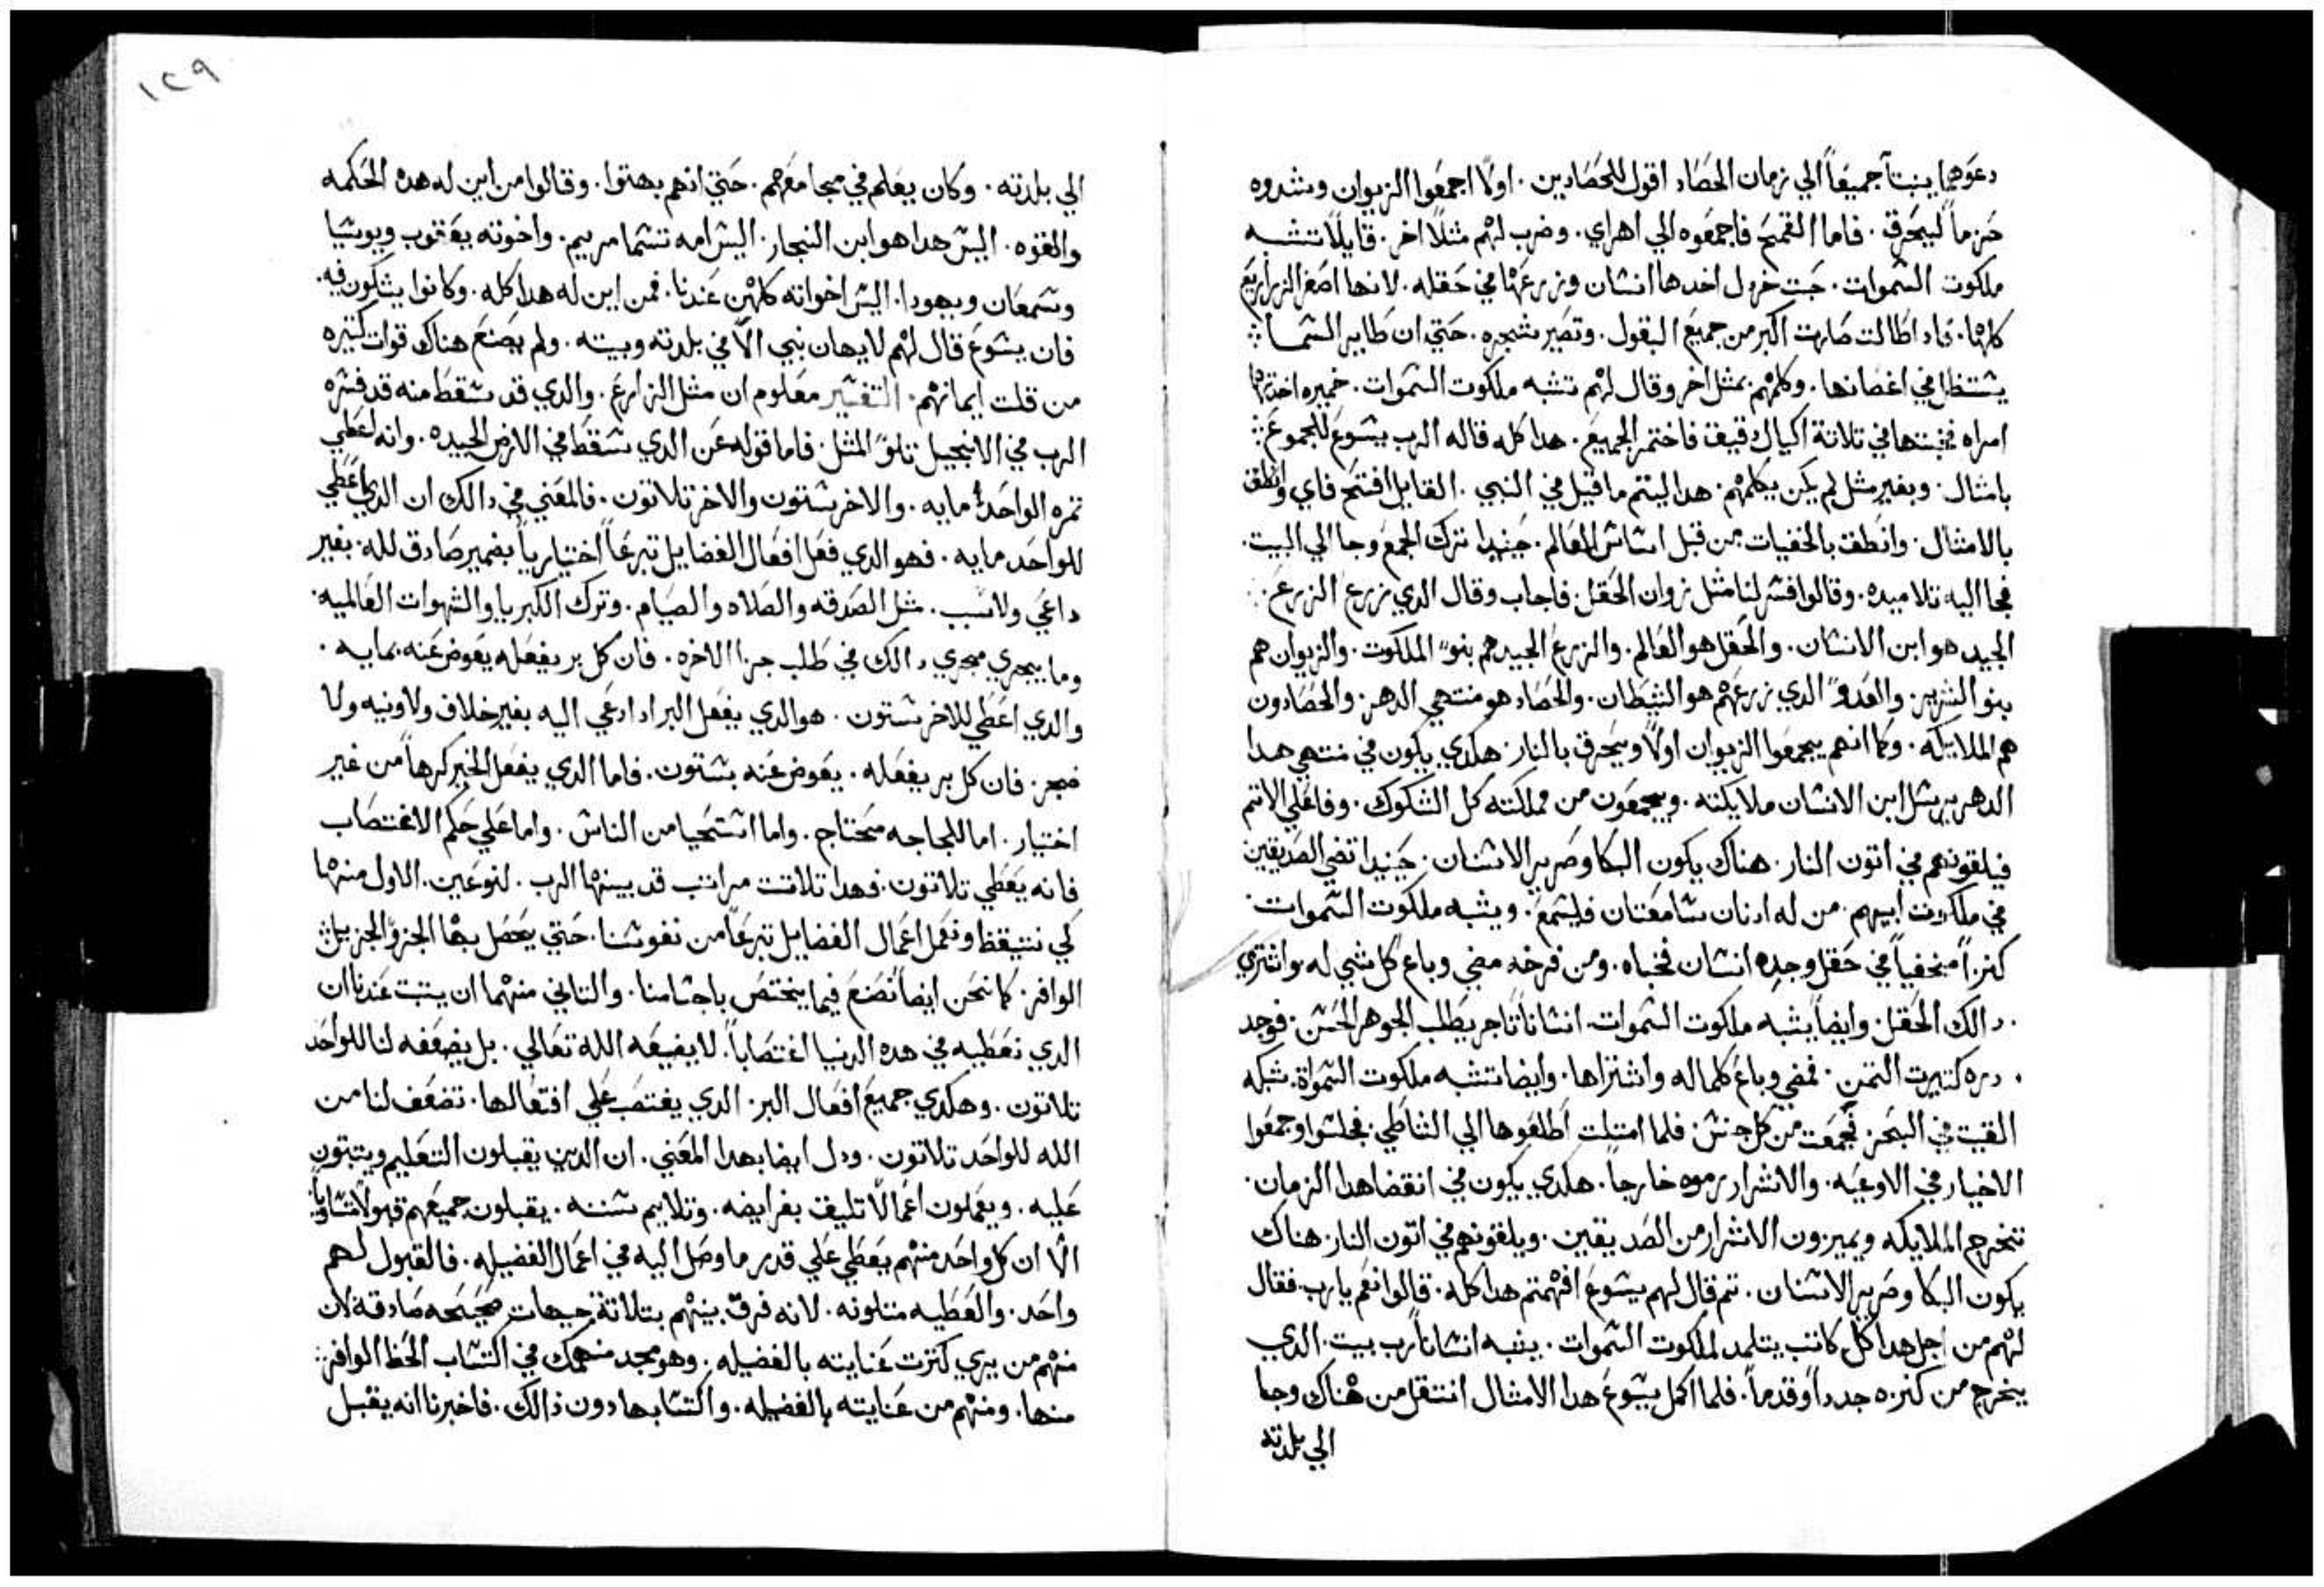 دعوهما ينبتا جميعاً الي زمان الحصاد اقول للحصادين. اولاً اجمعوا الزيوان وشدوه
حزماً ليحرق. فاما القمح فاجمعوه الي اهراي. وضرب لهم مثلاً اخر. قايلاً تشبه
ملكوت السموات. حبت خردل اخدها انسان وزرعها في حقله. لانها اصغر الزراريع
كلها. فادا طالت صارت اكبر من جميع البقول. وتصير شجره. حتي ان طاير السما
يستظل في اغصانها. وكلمهم بمثل اخر وقال لهم تشبه ملكوت السموات. خميره اخدتها
امراه فخبتها في تلاتة اكيال دقيق فاختمر الجميع. هدا كله قاله الرب يسوع للجموع
بامثال. وبغير مثل لم يكن يكلمهم. هدا ليتم ما قيل في النبي. القايل افتح فاي وانطق
بالامثال. وانطق بالخفيات من قبل اساس العالم. حينيدا ترك الجمع وجا الي البيت.
فجا اليه تلاميده. وقالوا فسر لنا مثل زوان الحقل. فاجاب وقال الدي زرع الزرع
الجيد هو ابن الانسان. والحقل هو العالم. والزرع الجيد هم بنو الملكوت. والزيوان هم
بنو الشرير. والعدو الدي زرعهم هو الشيطان. والحصاد هو منتهي الدهر. والحصادون
هم الملايكه. وكما انهم يجمعوا الزيوان اولاً ويحرق بالنار. هكدي يكون في منتهي هدا
الدهر يرسل ابن الانسان ملايكته. ويجمعون من مملكته كل الشكوك. وفاعلي الاتم
فيلقونهم في اتون النار. هناك يكون البكا وصرير الاسنان. حينيدا تضي الصديقين
في ملكوت ابيهم. من له ادنان سامعتان فليسمع. ويشبه ملكوت السموات.
كنزاً مخفياً في حقل وجده انسان فخباه. ومن فرحه مضي وباع كل شي له واشتري
دالك الحقل. وايضاً يشبه ملكوت السموات. انساناً تاجر يطلب الجوهر الحسن. فوجد
دره كتيرت التمن. فمضي وباع كلماله واشتراها. وايضا تشبه ملكوت السمواة. شبكه
القيت في البحر. فجمعت من كل جنس. فلما امتلت اطلعوها الي الشاطي. فجلسوا وجمعوا
الاخيار في الاوعيه. والاشرار رموه خارجاً. هكدي يكون في انقضا هدا الزمان.
تخرج الملايكه ويميزون الاشرار من الصديقين. ويلقونهم في اتون النار. هناك
يكون البكا وصرير الاسنان. تم قال لهم يسوع افهمتم هدا كله. قالوا نعم يارب. فقال
لهم من اجل هدا كل كاتب يتلمد لملكوت السموات. يشبه انساناً رب بيت. الدي
يخرج من كنزه جدداً وقدماً. فلما اكمل يسوع هدا الامثال انتقل من هناك وجا
الي بلدته
١٢٩
الي بلدته. وكان يعلم في مجامعهم. حتي انهم بهتوا. وقالوا من اين له هده الحكمه
والقوه. اليس هدا هو ابن النجار. اليس امه تسما مريم. واخوته يعقوب ويوسيا
وسمعان ويهودا. اليس اخواته كلهن عندنا. فمن اين له هدا كله. وكانوا يشكون فيه.
فان يسوع قال لهم لا يهان نبي الاّ في بلدته وبيته. ولم يصنع هناك قوات كتيره
من قلت ايمانهم. التفسير معلوم ان متل الزارع. والدي قد سقط منه قد فسره
الرب في الانجيل تلو المثل. فاما قوله عن الدي سقط في الارض الجيده. وانه اعطي
تمره الواحد مايه. والاخر ستون والاخر تلاتون. فالمعني في دالك ان الدي اعطي
للواحد مايه. فهو الدي فعل افعال الفضايل تبرعاً اختيارياً بضمير صادق لله. بغير
داعي ولا سبب. مثل الصدقه والصلاه والصيام. وترك الكبريا والشهوات العالميه.
وما يجري مجري دالك في طلب جزا الاخره. فان كل بر يفعله يعوض عنه بمايه.
والدي اعطي للاخر ستون. هو الدي يفعل البر ادا دعي اليه بغير خلاف ولا ونيه ولا
ضجر. فان كل بر يفعله. يعوض عنه بستون. فاما الدي يفعل الخير كرهاً من غير
اختيار. اما للجاجه محتاج. واما استحيا من الناس. واما علي حكم الاغتصاب
فانه يعطي تلاتون. فهدا تلاتت مراتب قد بينها الرب. لنوعين. الاول منهما
لكي نتيقظ ونعمل اعمال الفضايل تبرعاً من نفوسنا. حتي يحصل بها الجزو الجزيل
الوافر. كما نحن ايضاً نصنع فيما يختص باجسامنا. والتاني منهما ان يتبت عندنا ان
الدي نعطيه في هده الدنيا اغتصاباً. لا يضيعه الله تعالي. بل يضعفه لنا للواحد
تلاتون. وهكدي جميع افعال البر. الدي يغتصب علي افتعالها. تضعف لنا من
الله للواحد تلاتون. ودل ايضا بهدا المعني. ان الدين يقبلون التعليم ويتبتون
عليه. ويعملون اعمالاً تليق بفرايضه. وتلايم سننه. يقبلون جميعهم قبولاً متساوياً
الاّ ان كل واحد منهم يعطي علي قدر ما وصل اليه في اعمال الفضيله. فالقبول لهم
واحد. والعطيه متلونه. لانه فرق بينهم بتلاتة جيهات صحيحه صادقه لان
منهم من يري كترت عنايته بالفضيله. وهو مجد منهمك في اكتساب الحظ الوافر
منها. ومنهم من عنايته بالفضيله. واكتسابها دون ذالك. فاخبرنا انه يقبل